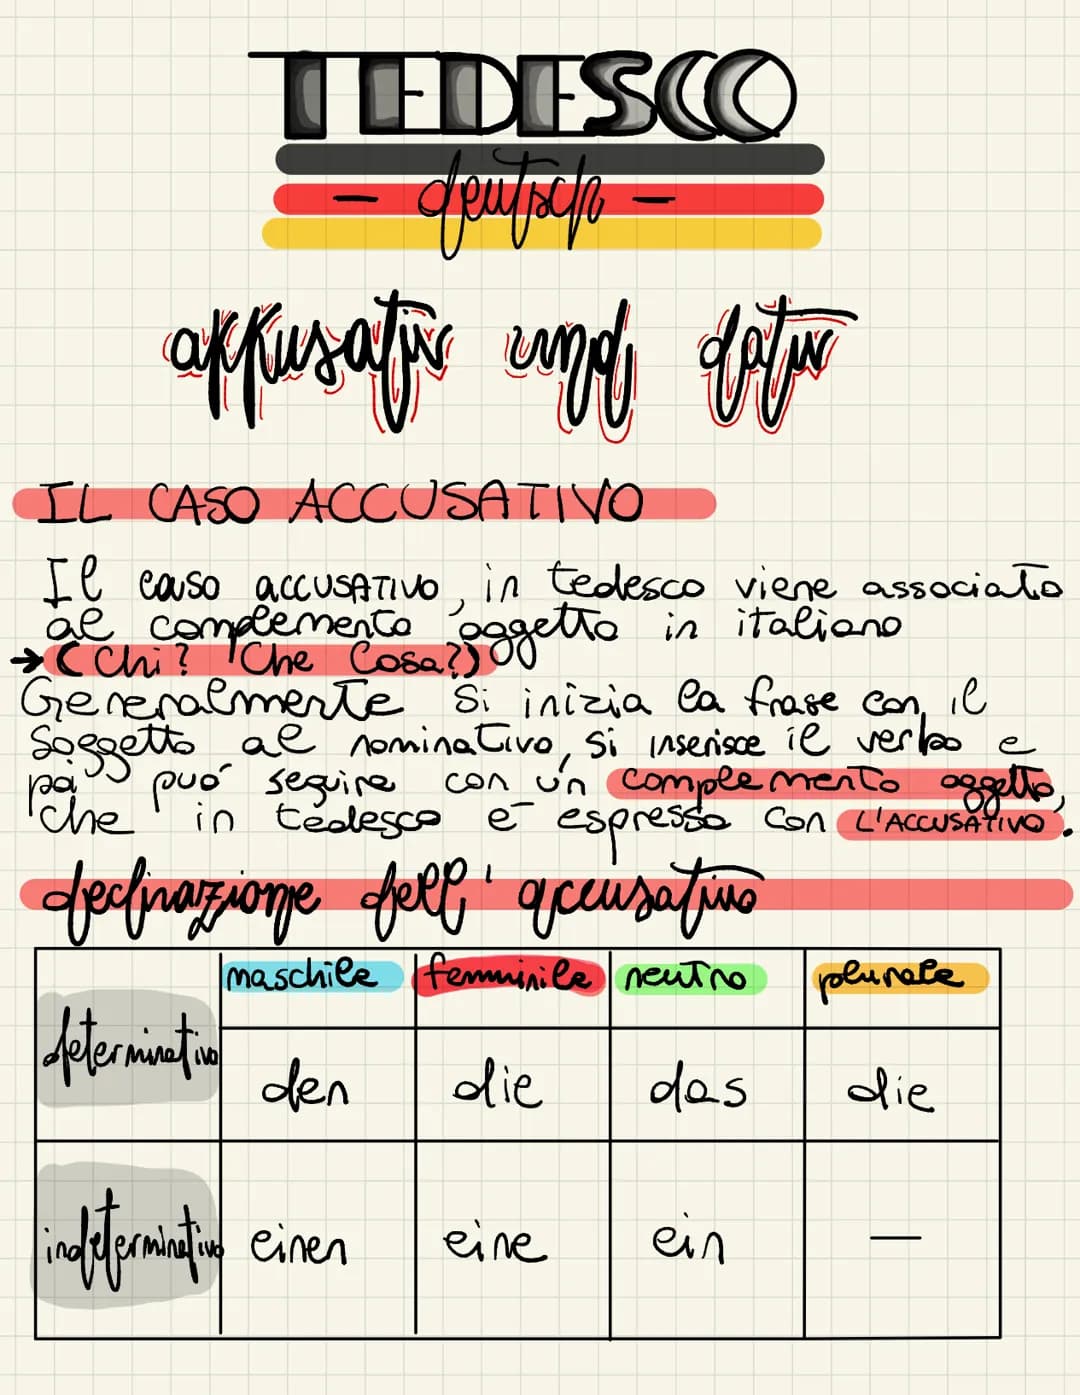 TEDESCO
- deutsch -
akkusativ und dativ
IL CASO ACCUSATIVO
Il caso ACCUSATIVO, in tedesco viene associato
al complemento oggetto in italiano
→ (Chi? Che Cosa?)
Generalmente si inizia la frase con il
soggetto al nominativo, si inserisce il verbo e
poi può seguire con un complemento oggetto,
che in tedesco è espresso con L'ACCUSATIVO.
declinazione dell'accusativo
maschile femminile neutro plurale
determinativo den die das die
indeterminativo einen eine ein —